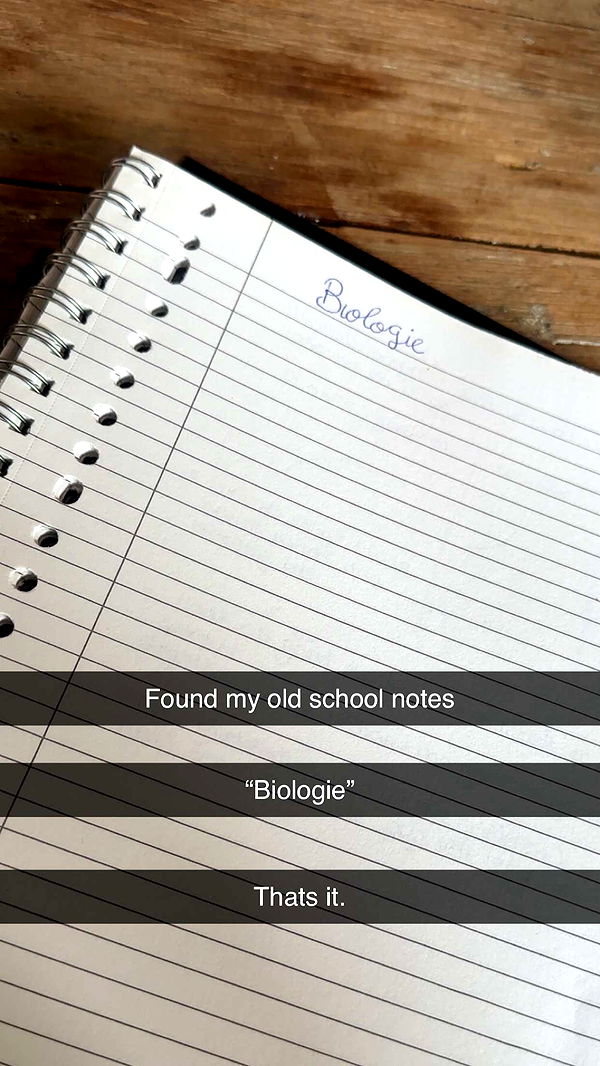 Biologie
Found my old school notes
“Biologie”
Thats it.